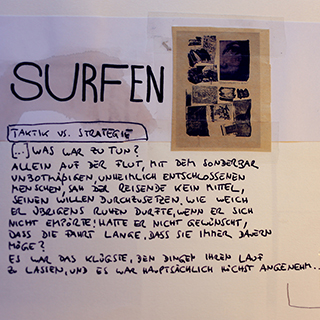 SURFEN
TAKTIK VS. STRATEGIE
[..] WAS WAR ZU TUN?
ALLEIN AUF DER FLUT, MIT DEM SONDERBAR
UNBOTMÄßIGEN, UNHEIMLICH ENTSCHLOSSENEN
MENSCHEN, SAH DER REISENDE KEIN MITTEL,
SEINEN WILLEN DURCHZUSETZEN. WIE WEICH
ER ÜBRIGENS RUHEN DURFTE, WENN ER SICH
NICHT EMPÖRTE! HATTE ER NICHT GEWÜNSCHT,
DASS DIE FAHRT LANGE, DASS SIE IMMER DAUERN
MÖGE?
ES WAR DAS KLÜGSTE, DEN DINGEN IHREN LAUF
ZU LASSEN, UND ES WAR HAUPTSÄCHLICH HÖCHST ANGENEHM...